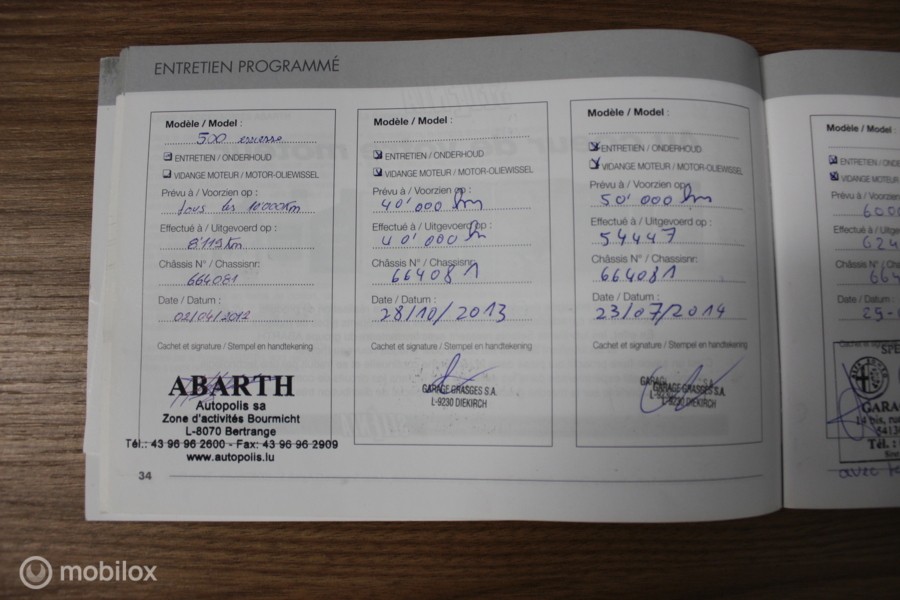 ENTRETIEN PROGRAMMÉ
Modèle / Model :
500 essence
ENTRETIEN / ONDERHOUD
VIDANGE MOTEUR / MOTOR-OLIEWISSEL
Prévu à / Voorzien op :
tous les 10000km
Effectué à / Uitgevoerd op :
8'119 km
Châssis N° / Chassisnr:
664081
Date / Datum :
02/04/2012
Cachet et signature / Stempel en handtekening
ABARTH
Autopolis sa
Zone d'activités Bourmicht
L-8070 Bertrange
Tél.: 43 96 96 2600 - Fax: 43 96 96 2909
www.autopolis.lu
34
Modèle / Model :
ENTRETIEN / ONDERHOUD
VIDANGE MOTEUR / MOTOR-OLIEWISSEL
Prévu à / Voorzien op :
40'000 km
Effectué à / Uitgevoerd op :
40'000 km
Châssis N° / Chassisnr:
664081
Date / Datum :
28/10/2013
Cachet et signature / Stempel en handtekening
GARAGE GRASGES S.A.
L-9230 DIEKIRCH
Modèle / Model :
ENTRETIEN / ONDERHOUD
VIDANGE MOTEUR / MOTOR-OLIEWISSEL
Prévu à / Voorzien op :
50'000 km
Effectué à / Uitgevoerd op :
54447
Châssis N° / Chassisnr:
664081
Date / Datum :
23/07/2014
Cachet et signature / Stempel en handtekening
GARAGE GRASGES S.A.
L-9230 DIEKIRCH
Modèle / Model
ENTRETIEN / ONDER
VIDANGE MOTEUR /
Prévu à / Voorzien
6000
Effectué à / Uitge
624
Châssis N° / Chas
664
Date / Datum :
29-
SPE
GARA
14 bis, rou
5413
Tél. :
avec
mobilox